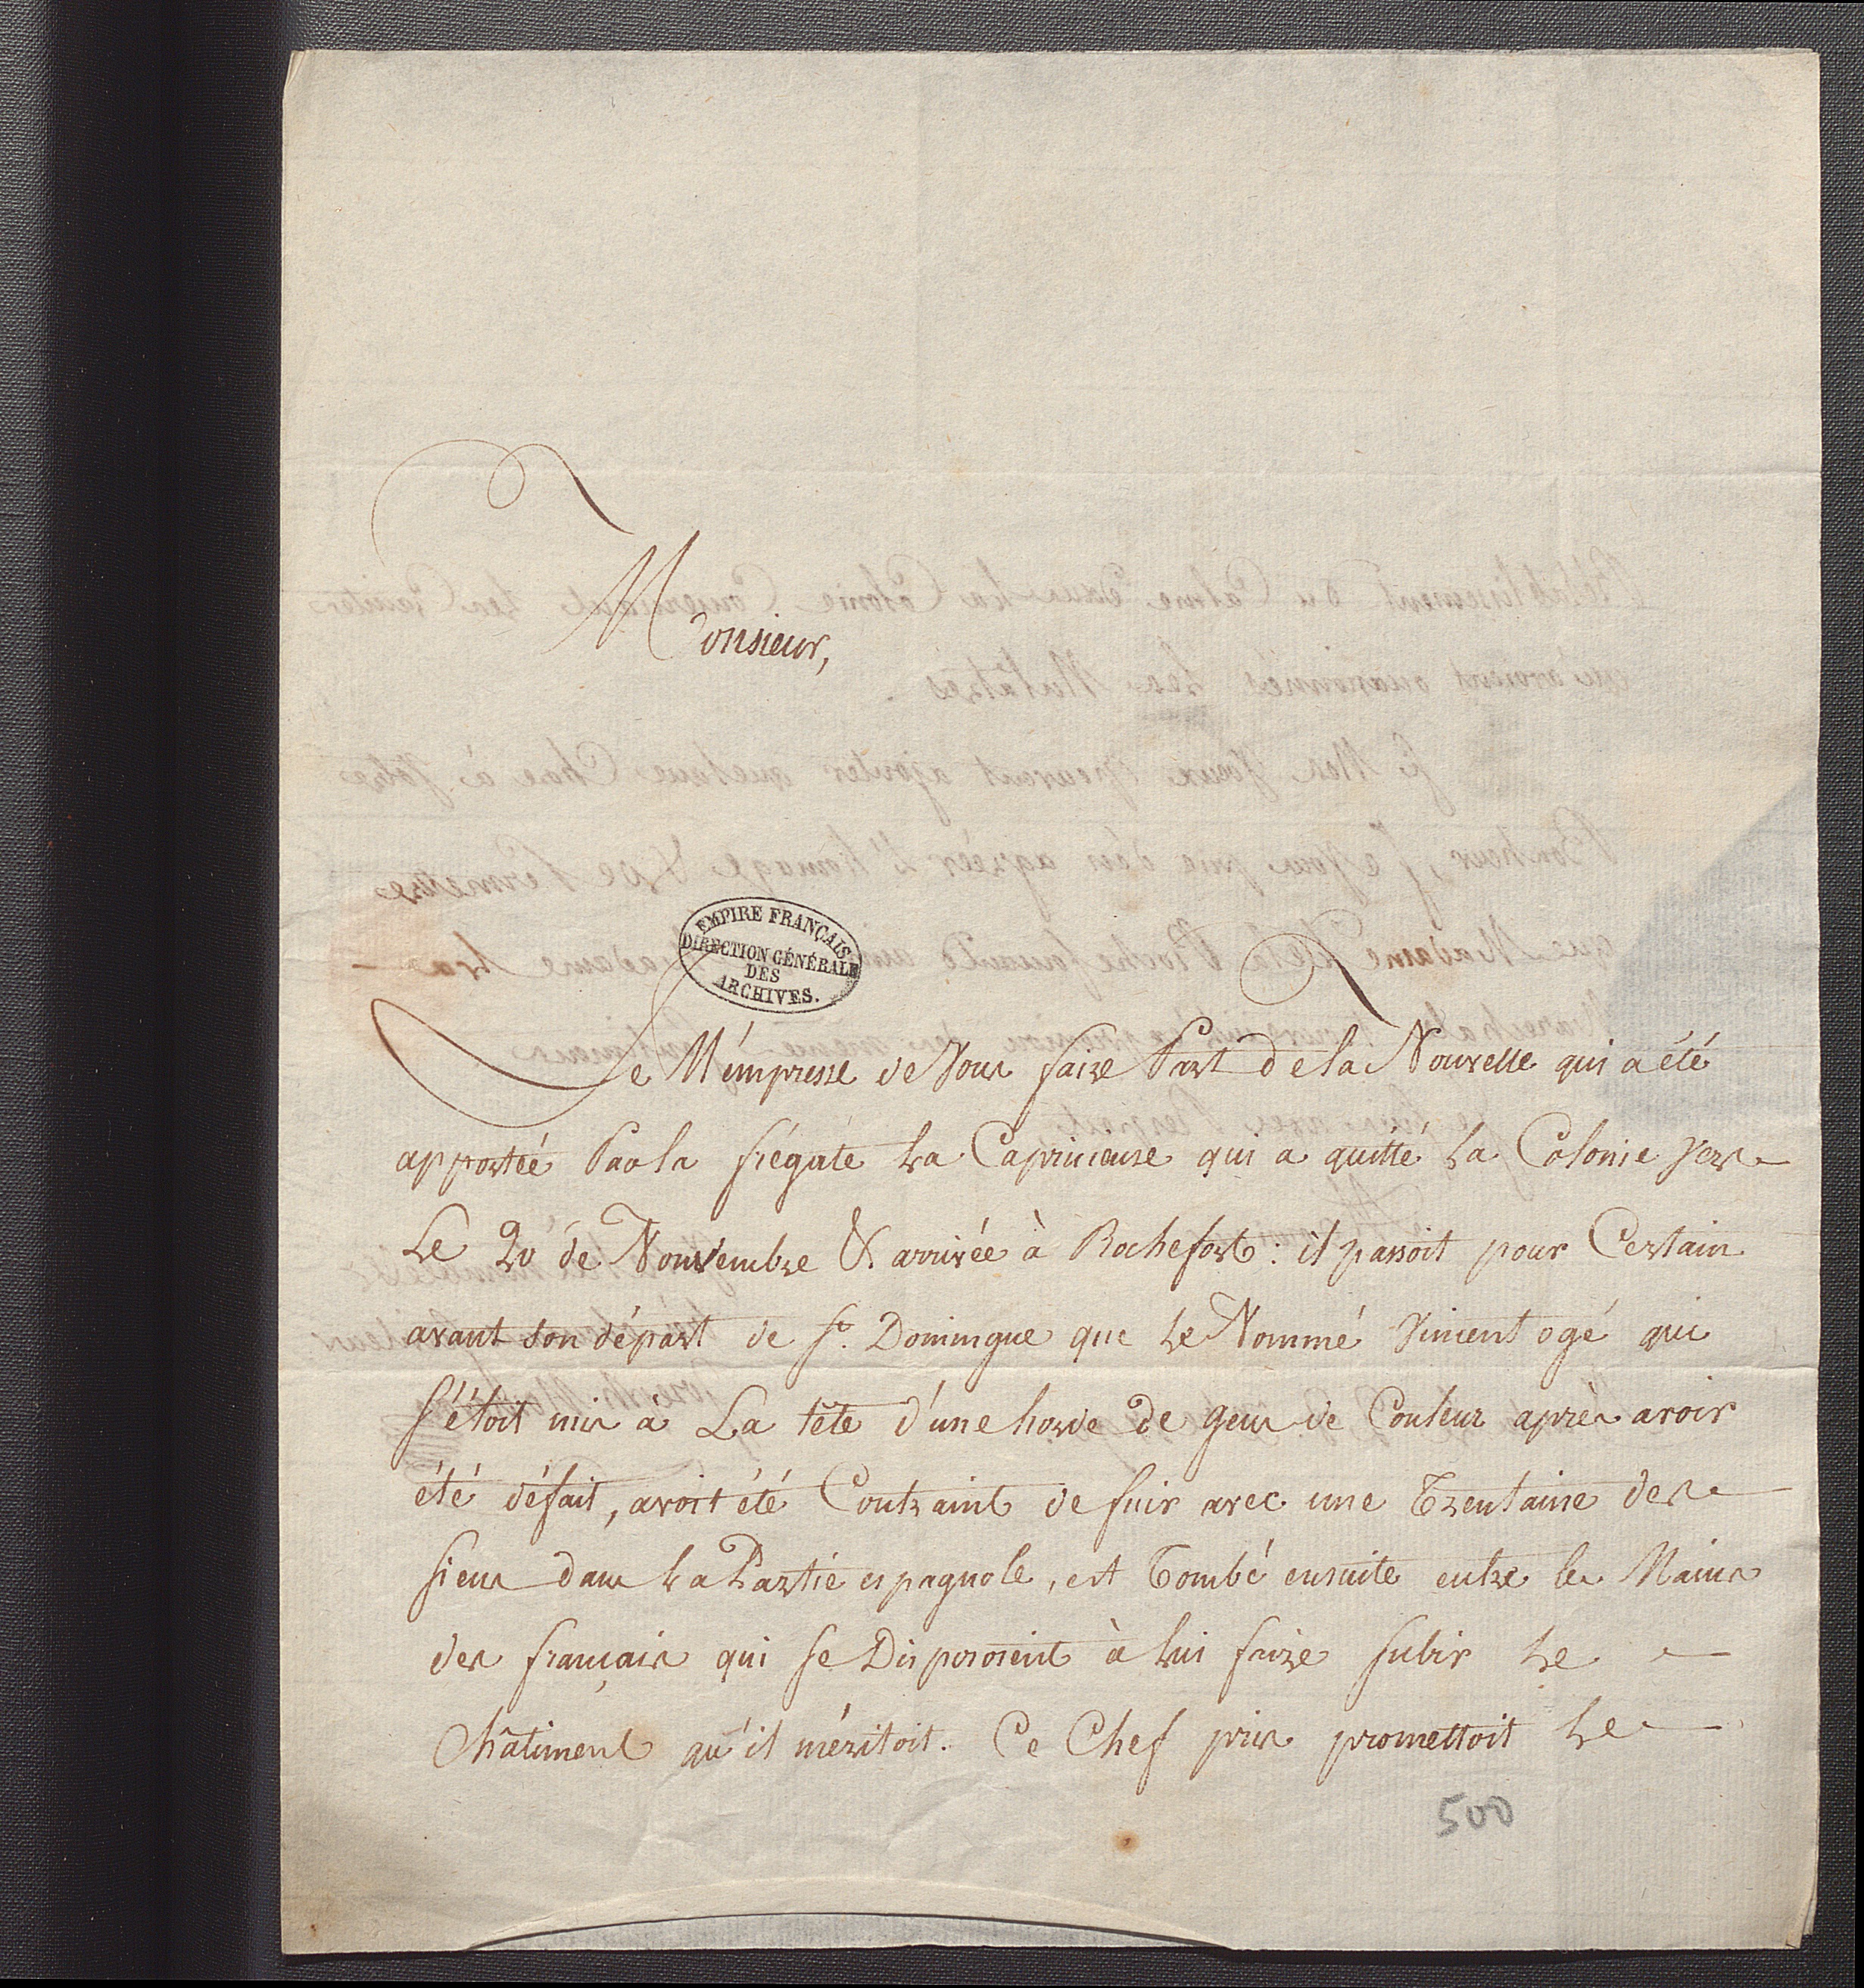 Monsieur,
EMPIRE FRANÇAIS
DIRECTION GÉNÉRALE
DES
ARCHIVES.
Je M'émpresse de Vous faire Part de la Nouvelle qui a été
apportée Par la frégate La Capricieuse qui a quitté la Colonie vers
Le 20 de Nouvembre & arrivée à Rochefort : il passoit pour Certain
avant son départ de St. Domingue que le Nommé Vincent ogé qui
s'étoit mis à La tête d'une horde de gens de Couleur après avoir
été défait, avoit été Contraint de fuir avec une Trentaine des
siens dans La Partie espagnole, est Tombé ensuite entre les Mains
des français qui se Disposoient à lui faire subir le
Châtiment qu'il méritoit. Ce Chef pris promettoit le
500